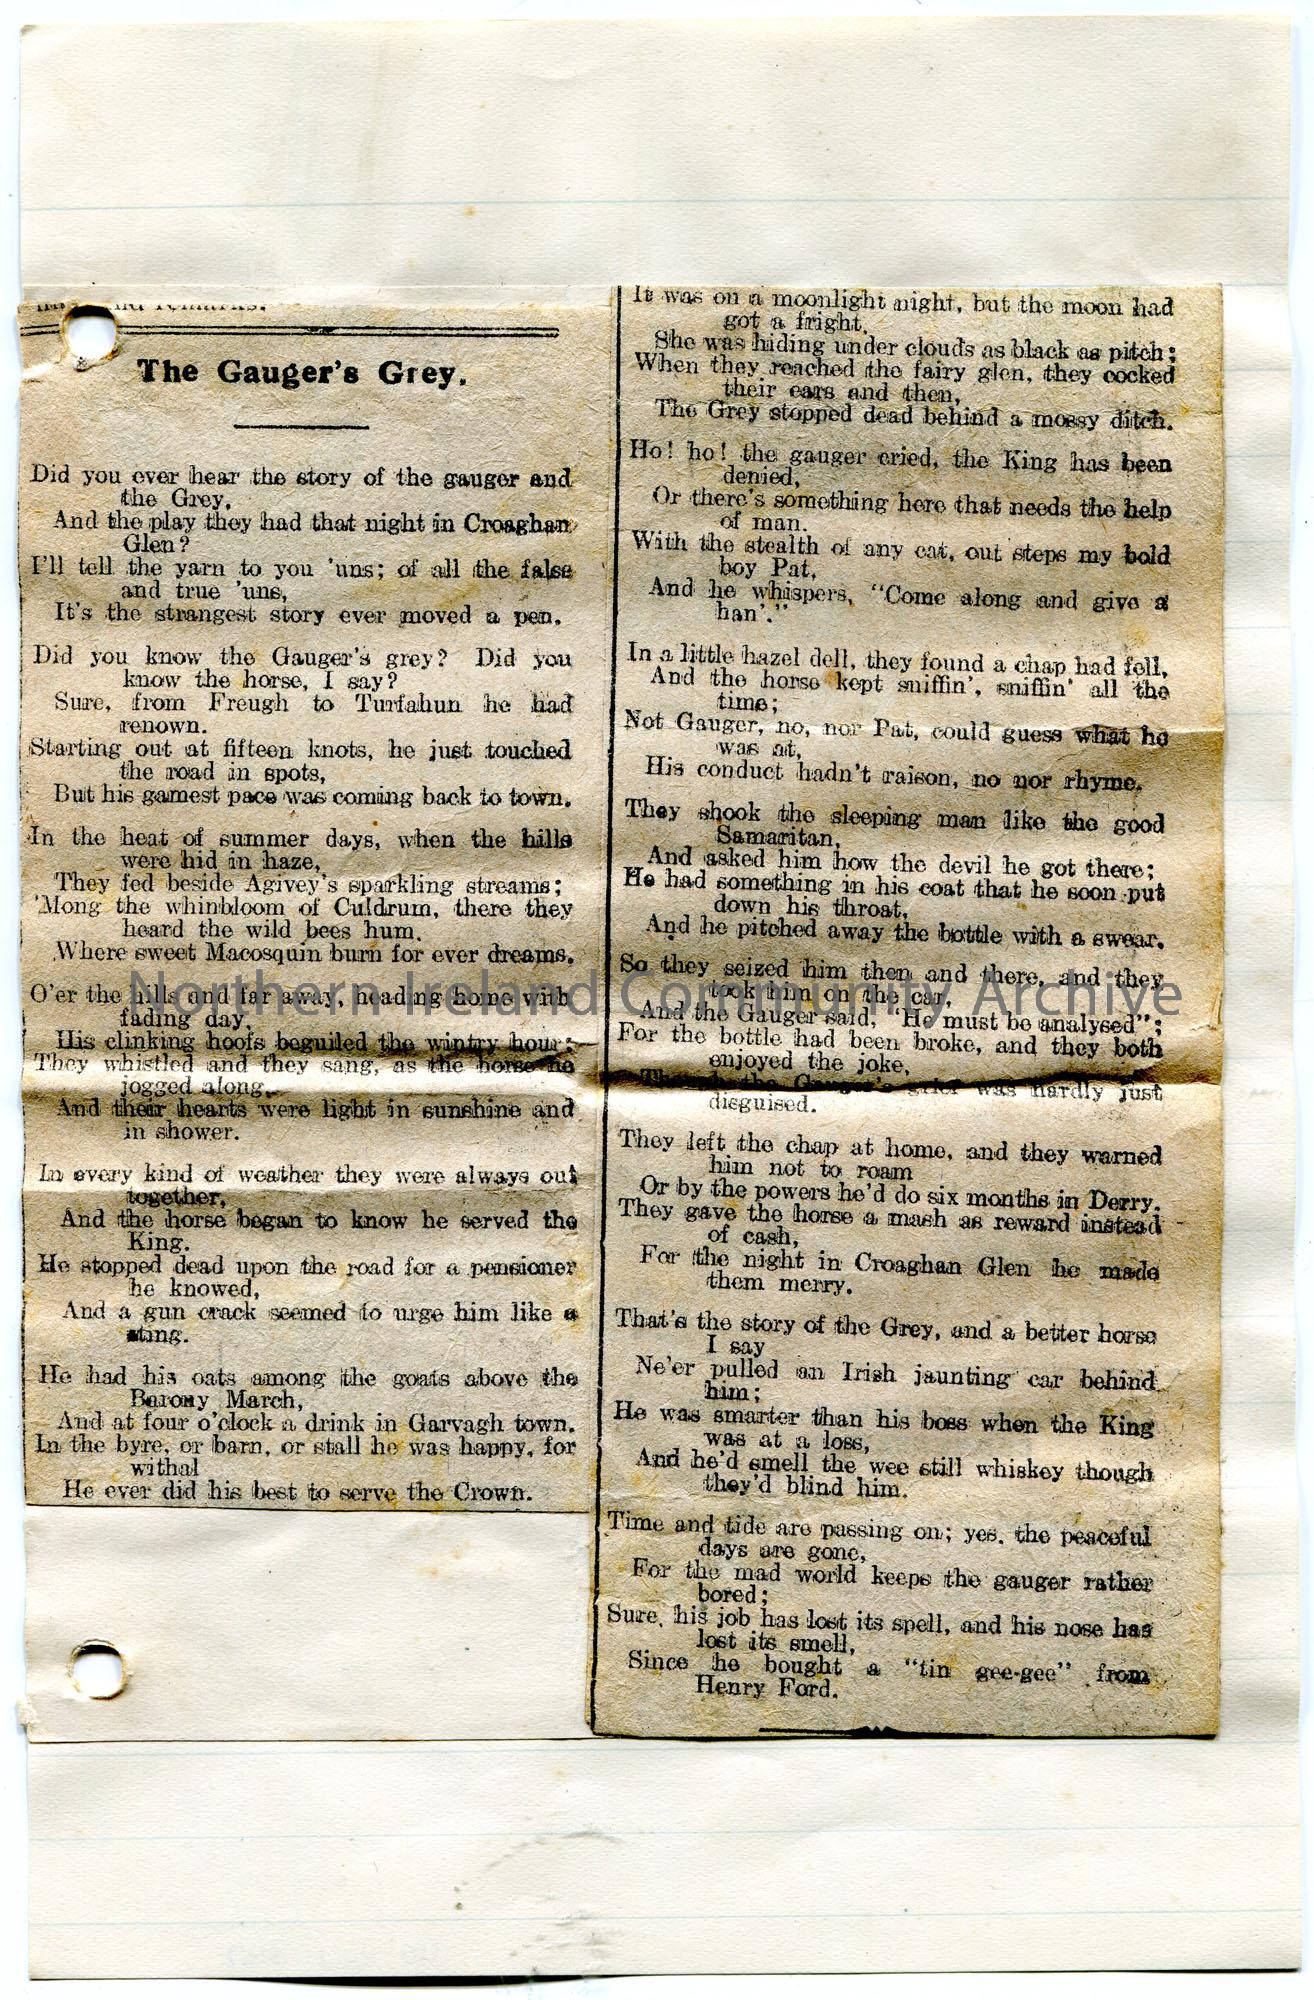 The Gauger's Grey.
Did you ever hear the story of the gauger and
the Grey,
And the play they had that night in Croaghan
Glen?
I'll tell the yarn to you 'uns; of all the false
and true 'uns,
It's the strangest story ever moved a pen.
Did you know the Gauger's grey? Did you
know the horse, I say?
Sure, from Freugh to Turfahun he had
renown.
Starting out at fifteen knots, he just touched
the road in spots,
But his gamest pace was coming back to town.
In the heat of summer days, when the hills
were hid in haze,
They fed beside Agivey's sparkling streams;
'Mong the whinbloom of Culdrum, there they
heard the wild bees hum.
Where sweet Macosquin burn for ever dreams.
O'er the hills and far away, heading home with
fading day,
His clinking hoofs beguiled the wintry hour;
They whistled and they sang, as the horse he
jogged along,
And their hearts were light in sunshine and
in shower.
In every kind of weather they were always out
together,
And the horse began to know he served the
King.
He stopped dead upon the road for a pensioner
he knowed,
And a gun crack seemed to urge him like a
sting.
He had his oats among the goats above the
Barony March,
And at four o'clock a drink in Garvagh town.
In the byre, or barn, or stall he was happy, for
withal
He ever did his best to serve the Crown.
It was on a moonlight night, but the moon had
got a fright,
She was hiding under clouds as black as pitch;
When they reached the fairy glen, they cocked
their ears and then,
The Grey stopped dead behind a mossy ditch.
Ho! ho! the gauger cried, the King has been
denied,
Or there's something here that needs the help
of man.
With the stealth of any cat, out steps my bold
boy Pat,
And he whispers, "Come along and give a
han'."
In a little hazel dell, they found a chap had fell,
And the horse kept sniffin', sniffin' all the
time;
Not Gauger, no, nor Pat, could guess what he
was at,
His conduct hadn't raison, no nor rhyme.
They shook the sleeping man like the good
Samaritan,
And asked him how the devil he got there;
He had something in his coat that he soon put
down his throat,
And he pitched away the bottle with a swear.
So they seized him then and there, and they
took him on the car,
And the Gauger said, "He must be analysed";
For the bottle had been broke, and they both
enjoyed the joke,
Though the Gauger's grief was hardly just
disguised.
They left the chap at home, and they warned
him not to roam
Or by the powers he'd do six months in Derry.
They gave the horse a mash as reward instead
of cash,
For the night in Croaghan Glen he made
them merry.
That's the story of the Grey, and a better horse
I say
Ne'er pulled an Irish jaunting car behind
him;
He was smarter than his boss when the King
was at a loss,
And he'd smell the wee still whiskey though
they'd blind him.
Time and tide are passing on; yes, the peaceful
days are gone,
For the mad world keeps the gauger rather
bored;
Sure, his job has lost its spell, and his nose has
lost its smell,
Since he bought a "tin gee-gee" from
Henry Ford.
Northern Ireland Community Archive